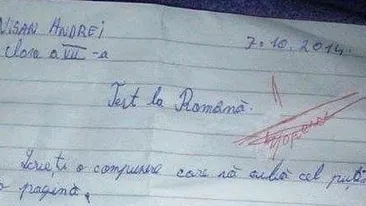 NISAN ANDREI
clasa a VII-a
7.10.2014.
Test la Română.
Scrieți o compunere care să aibă cel puțin
o pagină.